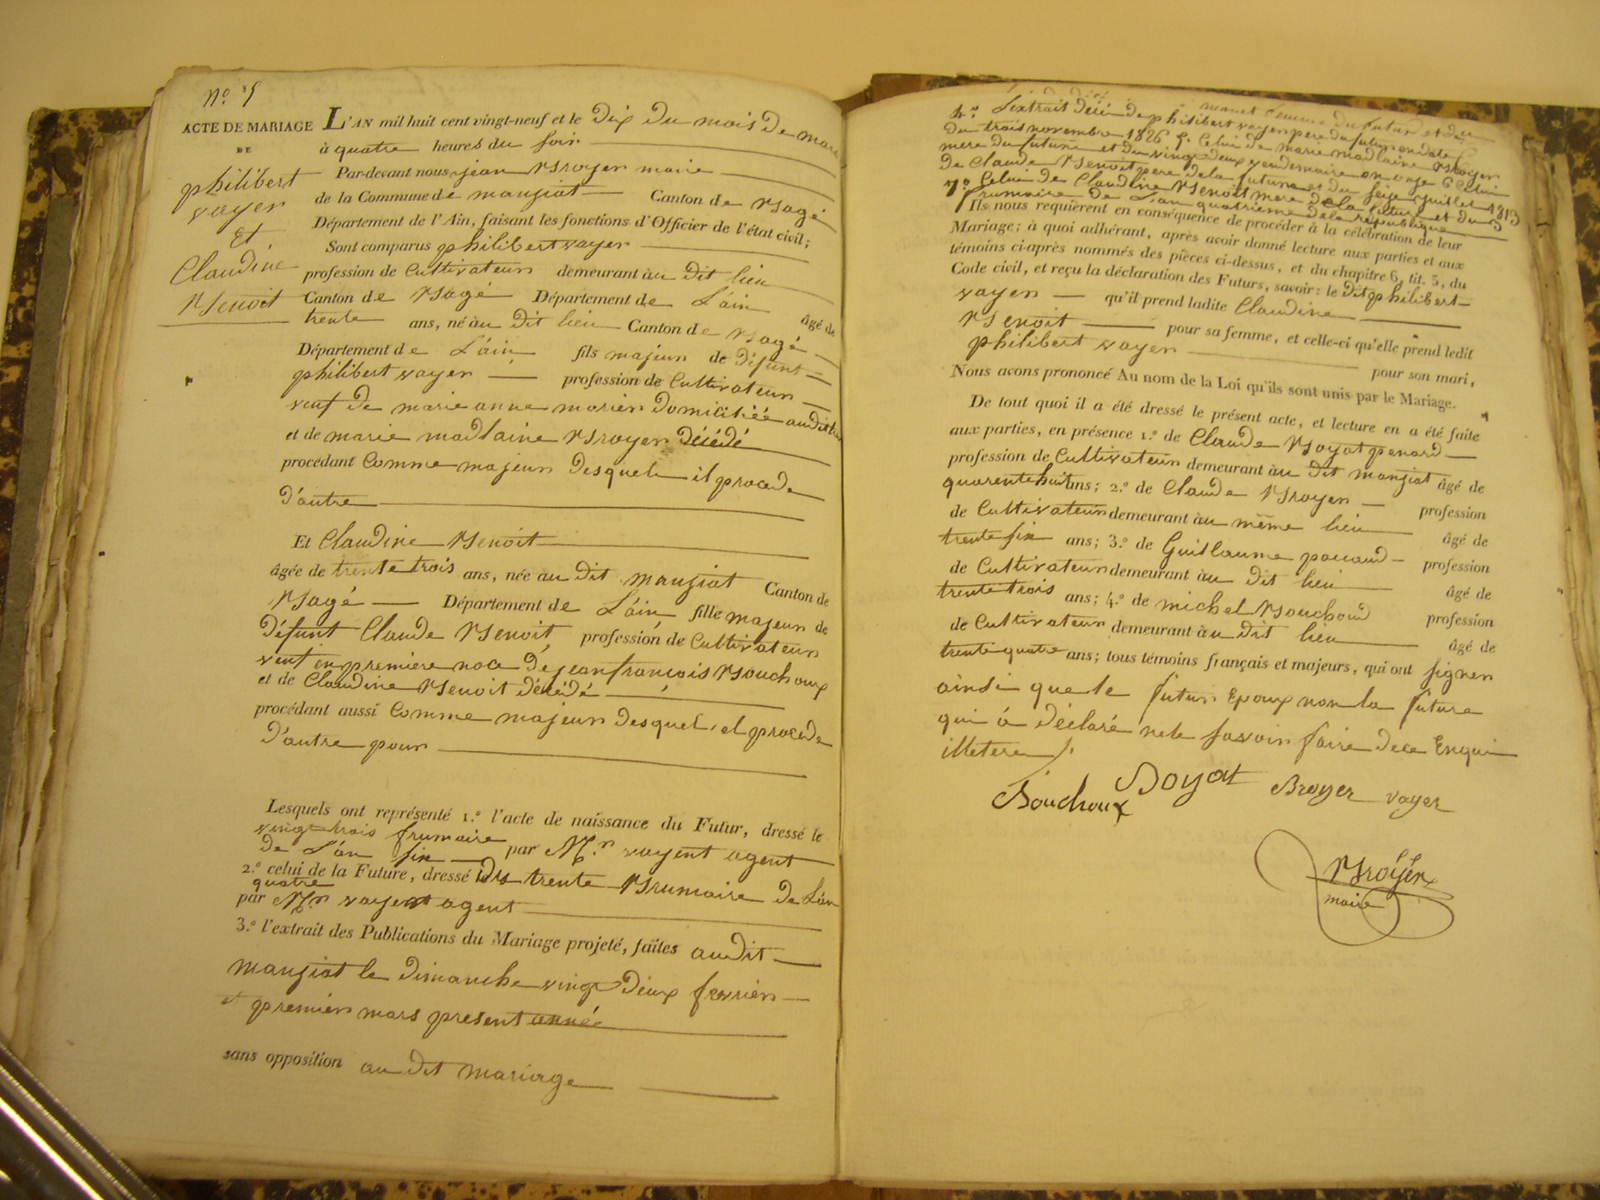 N.º 5
ACTE DE MARIAGE
DE
philibert
vayer
Et
Claudine
Benoit
L'AN mil huit cent vingt-neuf et le Dix du mois de mars
à quatre heures du soir
Par-devant nous jean Broyer maire
de la Commune de manziat Canton de Bagé
Département de l'Ain, faisant les fonctions d'Officier de l'état civil;
Sont comparus philibert vayer
profession de Cultivateur demeurant àu dit lieu
Canton de Bagé Département de L'áin âgé de
trente ans, né àu dit lieu Canton de Bagé
Département de L'áin fils majeur de Défunt
philibert vayer profession de Cultivateur
veuf de marie anne morier domiciliéé audit lieu
et de marie madlaine Broyer décédé
procédant Comme majeur desquele il procede
d'autre
Et Claudine Benoit
âgée de trente trois ans, née àu dit manziat Canton de
Bagé Département de L'áin fille majeur de
défunt Claude Benoit profession de Cultivateur
veuf en premiere noce de jean françois Bouchoux
et de Claudine Benoit décédé
procédant aussi Comme majeur desquel, el procede
d'autre pour
Lesquels ont représenté 1.º l'acte de naissance du Futur, dressé le
vingt trois frumaire
de L'án six par Mr. vayent agent
2.º celui de la Future, dressé le du trente Brumaire de L'án
quatre
par Mr vayent agent
3.º l'extrait des Publications du Mariage projeté, faites audit
manziat le dimanche vingt deux fevrier
et premier mars present année
sans opposition au dit mariage
4.º L'extrait décé de philibert vayer pere du futur en date
du trois novembre 1826 5.º Celui de marie madlaine Broyer
mere du future et du vingt deux vendemaire an onze 6 Celui
de Claude Benoit pere de la future et du seize juillet 1813
7.º Celui de Claudine Benoit mere de la future et du 5
frumaire de L'an quatrieme de la republique
Ils nous requièrent en conséquence de procéder à la célébration de leur
Mariage; à quoi adhérant, après avoir donné lecture aux parties et aux
témoins ci-après nommés des pièces ci-dessus, et du chapitre 6, tit. 5, du
Code civil, et reçu la déclaration des Futurs, savoir: le dit philibert
vayer qu'il prend ladite Claudine
Benoit pour sa femme, et celle-ci qu'elle prend ledit
philibert vayer pour son mari,
Nous avons prononcé Au nom de la Loi qu'ils sont unis par le Mariage.
De tout quoi il a été dressé le présent acte, et lecture en a été faite
aux parties, en présence 1.º de Claude Boyat penard
profession de Cultivateur demeurant àu dit manziat âgé de
quarente huit ans; 2.º de Claude Broyer profession
de Cultivateur demeurant àu même lieu âgé de
trente six ans; 3.º de Guillaume pauaud profession
de Cultivateur demeurant àu dit lieu âgé de
trente trois ans; 4.º de michel Bouchoud profession
de Cultivateur demeurant àu dit lieu âgé de
trente quatre ans; tous témoins français et majeurs, qui ont signer
ainsi que le futur Epoux non la future
qui à déclaré ne le savoir faire de ce Enqui
illetere
Bouchoux Boyat Broyer vayer
Broyer
maire